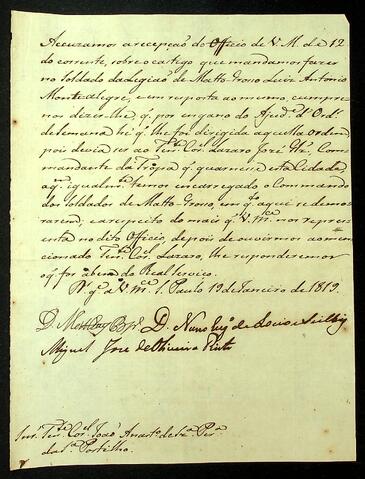 Accuzamos a recepção do Officio de V. M. de 12
do corrente, sobre o castigo que mandamos fazer
no soldado da Legião de Matto-Groso Luiz Antonio
Montealegre, e em resposta ao mesmo, cumpre
nos dizer-lhe q. por engano do Ajud. d' Ord.s
de semana he q. lhe foi dirigida aquella Ordem
pois devia ser ao Ten.te Cor.el Lazaro José Com
mandante da Tropa q. guarnese esta Cidade,
a q.m igualm.te temos encarregado o Commando
dos soldados de Matto-Groso em q.to aqui se demo
rarem, e a respeito do mais q. V. M.ce nos repres
enta no dito Officio, depois de ouvirmos ao men
cionado Ten.te Cor.el Lazaro, lhe responderemos
o q. for a bem do Real serviço.
D.s g.e a V. M.ce S. Paulo 19 de Janeiro de 1819.
D. Bp.o D. Nuno Eug.o de Locio e Seilbiz
Miguel José de Oliveira Pinto
Snr. Ten.te Cor.el João
da Portilho.